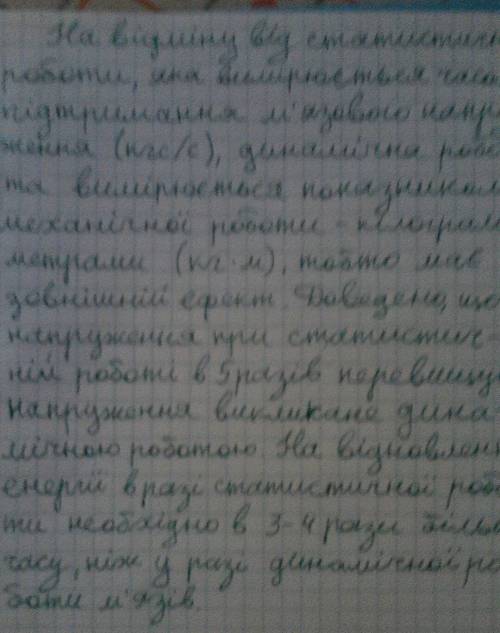 На відміну від статистичн
роботи, яка вимірюється часо
підтримання м'язового напр
ження (кгс/с), динамічна робо
та вимірюється показником
механічної роботи - кілограм
метрами (кг·м), тобто має
зовнішній ефект. Доведено, що
напруження при статистич-
ній роботі в 5 разів перевищу
напруження викликане дина
мічною роботою. На відновлен
енергії в разі статистичної робо
ти необхідно в 3-4 рази більш
часу, ніж у разі динамічної ро
боти м'язів.